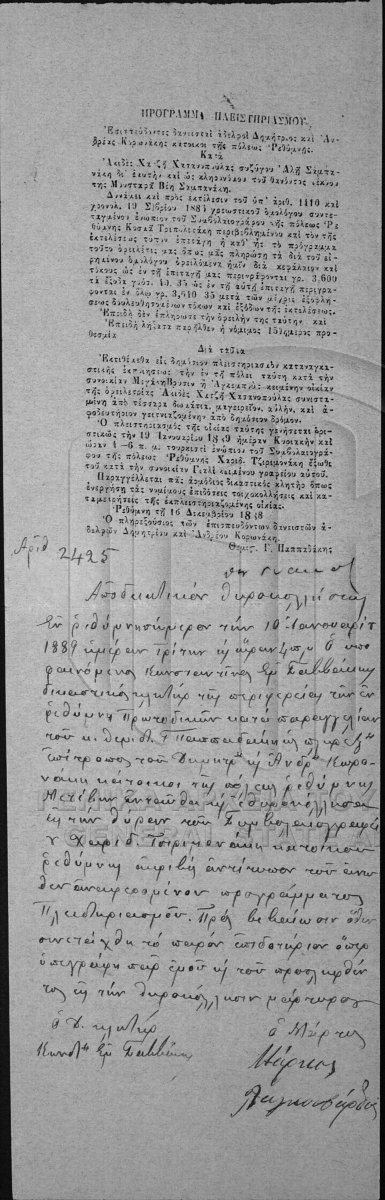 ΠΡΟΓΡΑΜΜΑ ΠΛΕΙΣΤΗΡΙΑΣΜΟΥ
Ἐπισπεύδοντες δανεισταὶ ἀδελφοὶ Δημήτριος καὶ Ἀν-
δρέας Κορωνάκης κάτοικοι τῆς πόλεως Ῥεθύμνης.
Κατὰ
Ἀκιδὲς Χατζῆ Χασανοπούλας συζύγου Ἀλῆ Σαμπα-
νάκη δι' ἑαυτὴν καὶ ὡς κληρονόμου τοῦ θανόντος τέκνου
της Μουσταφᾶ Βέη Σαμπανάκη.
Δυνάμει καὶ πρὸς ἐκτέλεσιν τοῦ ὑπ' ἀριθ. 1410 καὶ
χρονολ. 19 9βρίου 1884 χρεωστικοῦ ὁμολόγου συντε-
ταγμένου ἐνώπιον τοῦ Συμβολαιογράφου τῆς πόλεως Ῥε-
θύμνης Κοσμᾶ Τριπολιτάκη περιβεβλημένου καὶ τὸν τῆς
ἐκτελέσεως τύπον ἐπειδὴ ἡ καθ' ἧς τὸ πρόγραμμα
τοῦτο ὀφειλέτις μας ὅπως μᾶς πληρώσῃ τὰ διὰ τοῦ εἰ-
ρημένου ὁμολόγου ὀφειλόμενα ἡμῖν διὰ κεφάλαιον καὶ
τόκους ὡς ἐν τῇ ἐπιταγῇ μας περιγράφονται γρ. 3,600
τὰ ἔξοδα γρόσ. 40,35 ὡς ἐν τῇ αὐτῇ ἐπιταγῇ περιγρά-
φονται ἐν ὅλῳ γρ. 3,640 35 μετὰ τῶν μέχρις ἐξοφλή-
σεως δουλευθησομένων τόκων καὶ ἐξόδων τῆς ἐκτελέσεως.
Ἐπειδὴ δὲν ἐπλήρωσε τὴν ὀφειλήν της ταύτην καὶ
Ἐπειδὴ ἤδη παρῆλθεν ἡ νόμιμος 15νήμερος προ-
θεσμία
Διὰ ταῦτα
Ἐκτίθεται εἰς δημόσιον πλειστηριασμὸν καταναγκα-
στικῆς ἐκποιήσεως τὴν ἐν τῇ πόλει ταύτῃ κατὰ τὴν
συνοικίαν κειμένην οἰκίαν
τῆς ὀφειλετρίας Ἀκιδὲς Χατζῆ Χασανοπούλας συνιστα-
μένη ἀπὸ τέσσαρα δωμάτια, μαγειρεῖον, αὐλὴν, καὶ ἀ-
φοδευτήριον γειτνιαζομένην ἀπὸ δημόσιον δρόμον.
Ὁ πλειστηριασμὸς τῆς οἰκίας ταύτης γενήσεται ὁρι-
στικῶς τὴν 19 Ἰανουαρίου 1889 ἡμέραν Κυριακὴν καὶ
ὥραν 4—6 π. μ. τουρκιστὶ ἐνώπιον τοῦ Συμβολαιογρά-
φου τῆς πόλεως Ῥεθύμνης Χαριδ. Τζιριμονάκη ἔξωθι
τοῦ κατὰ τὴν συνοικίαν Γιαλὶ κειμένου γραφείου αὐτοῦ.
Παραγγέλλεται πᾶς ἁρμόδιος δικαστικὸς κλητὴρ ὅπως
ἐνεργήσῃ τὰς νομίμους ἐπιδόσεις τοιχοκολλήσεις καὶ κα-
ταμετρήσεις τῆς ἐκπλειστηριαζομένης οἰκίας.
Ῥεθύμνη τῇ 16 Δεκεμβρίου 1888
Ὁ πληρεξούσιος τῶν ἐπισπευδόντων δανειστῶν ἀ-
δελφῶν Δημητρίου καὶ Ἀνδρέου Κορωνάκη.
Θεμισ. Γ. Παππαδάκης
Ἀριθ 2425
Ἀποδεικτικὸν θυροκολλήσεως
Ἐν Ῥεθύμνῃ σήμερον τὴν 10 Ἰανουαρίου
1889 ἡμέραν τρίτην κὴ ὥραν 4 π.μ. ὁ ὑπο
φαινόμενος Κωνσταντῖνος Ἐμ Σαββάκης
δικαστικὸς κλητὴρ τῆς περιφερείας τῶν ἐν
Ῥεθύμνῃ Πρωτοδικῶν κατὰ παραγγελίαν
τοῦ κ. Θεμιστ. Γ Παππαδάκη ὡς πληρεξ
ἐπίτροπος τοῦ Δημητρ κὴ Ἀνδρ Κορω
νάκη κάτοικοι τῆς πόλεως Ῥεθύμνης
μετέβην ἐνταῦθα κὴ ἐθυροκόλλησα
εἰς τὴν θύραν τοῦ Συμβολαιογράφου
Χαριδ. Τσιριμονάκη κατοίκου
Ῥεθύμνης ἀκριβῆ ἀντίτυπον τοῦ ἄνω
θεν ἀναφερομένου προγράμματος
Πλειστηριασμοῦ. Πρὸς βεβαίωσιν ὅθεν
συνετάχθη τὸ παρὸν ἐπιδοτήριον ὅπερ
ὑπεγράφη παρ ἐμοῦ κὴ τοῦ προσληφθέν
τος εἰς τὴν θυροκόλλησιν μάρτυρος
ὁ Δ. κλητὴρ
ὁ Μάρτυς
Κωνστ Ἐμ Σαββάκης
Μάρκος